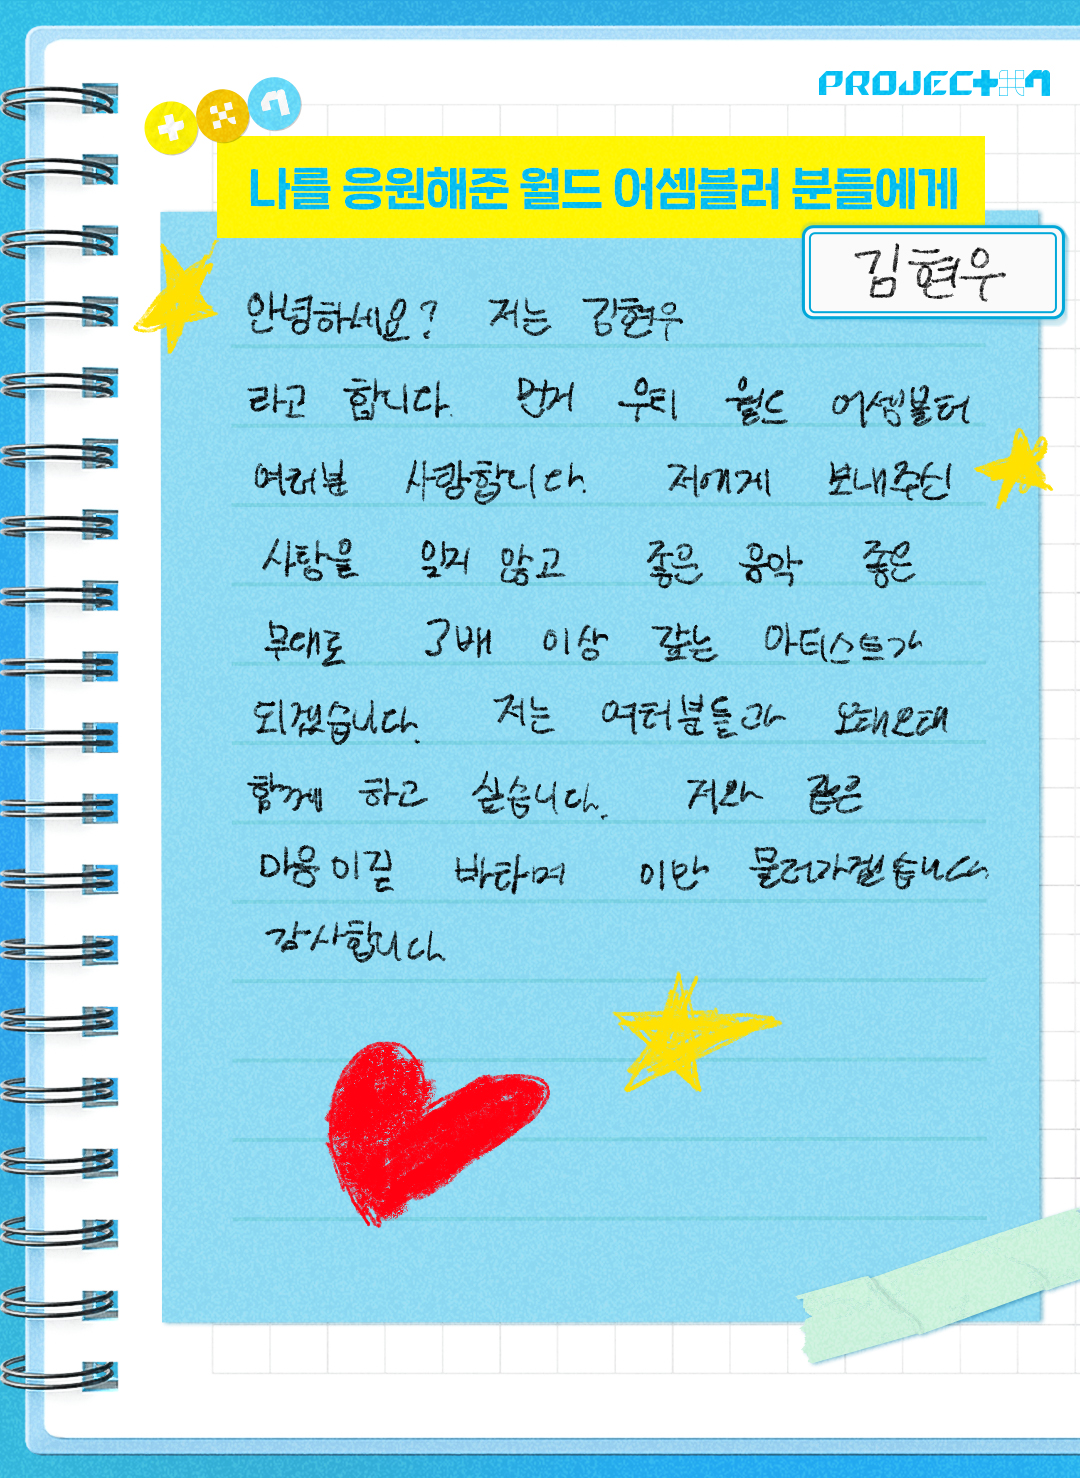 PROJECT 7
나를 응원해준 월드 어셈블러 분들에게
김현우
안녕하세요? 저는 김현우
라고 합니다. 먼저 우리 월드 어셈블러
여러분 사랑합니다. 저에게 보내주신
사랑을 잊지 않고 좋은 음악 좋은
무대로 3배 이상 갚는 아티스트가
되겠습니다. 저는 여러분들과 오래오래
함께 하고 싶습니다. 저와 같은
마음이길 바라며 이만 물러가겠습니다
감사합니다.